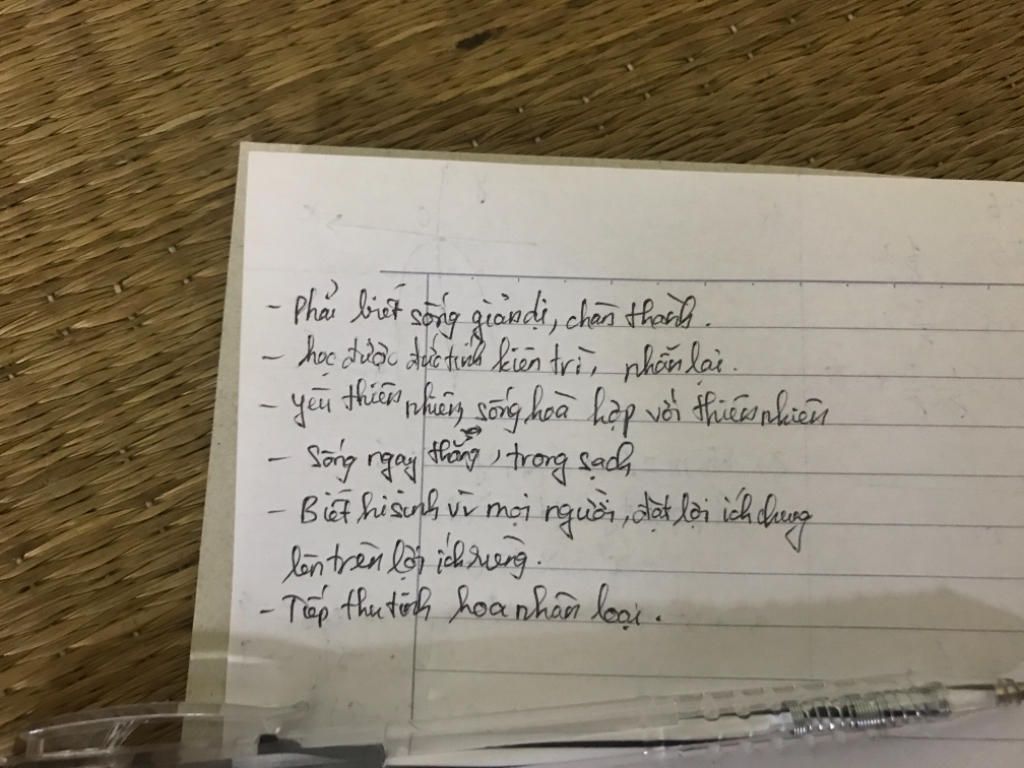 - Phải biết sống giản dị, chân thành.
- học được đức tính kiên trì, nhẫn lại.
- yêu thiên nhiên, sống hoà hợp với thiên nhiên
- Sống ngay thẳng, trong sạch
- Biết hi sinh vì mọi người, đặt lợi ích chung
lên trên lợi ích riêng.
- Tiếp thu tinh hoa nhân loại.